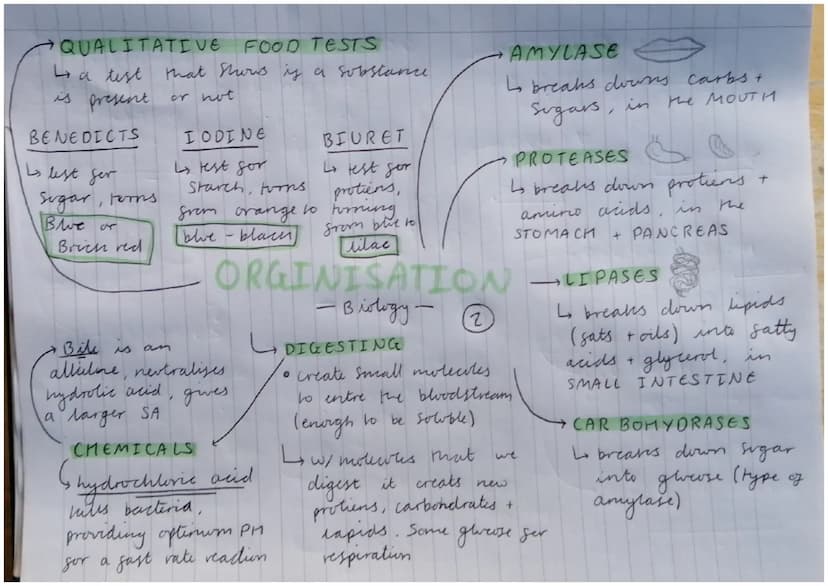 QUALITATIVE FOOD TESTS
↳ a test that shows if a substance
is present or not
BENEDICTS
↳ test for
sugar, turns
Blue or
Brick red
IODINE
↳ test for
starch, turns
from orange to
blue-black
BIURET
↳ test for
protiens,
turning
from blue to
lilac
AMYLASE
↳ breaks downs carbs +
sugars, in the MOUTH
PROTEASES
↳ breaks down protiens +
amino acids, in the
STOMACH + PANCREAS
ORGINISATION
— Biology —
2
LIPASES
↳ breaks down lipids
(fats + oils) into fatty
acids + glycerol, in
SMALL INTESTINE
CARBOHYDRASES
↳ breaks down sugar
into glucose (type of
amylase)
DIGESTING
• create small molecules
to entre the bloodstream
(enough to be soluble)
↳ w/ molecules that we
digest it creats new
protiens, carbohdrates +
lapids. Some glucose for
respiration
Bile is an
alkiline, neutralises
hydrolic acid, gives
a larger SA
CHEMICALS
hydrochloric acid
kills bacteria,
providing optimum PH
for a fast rate reaction